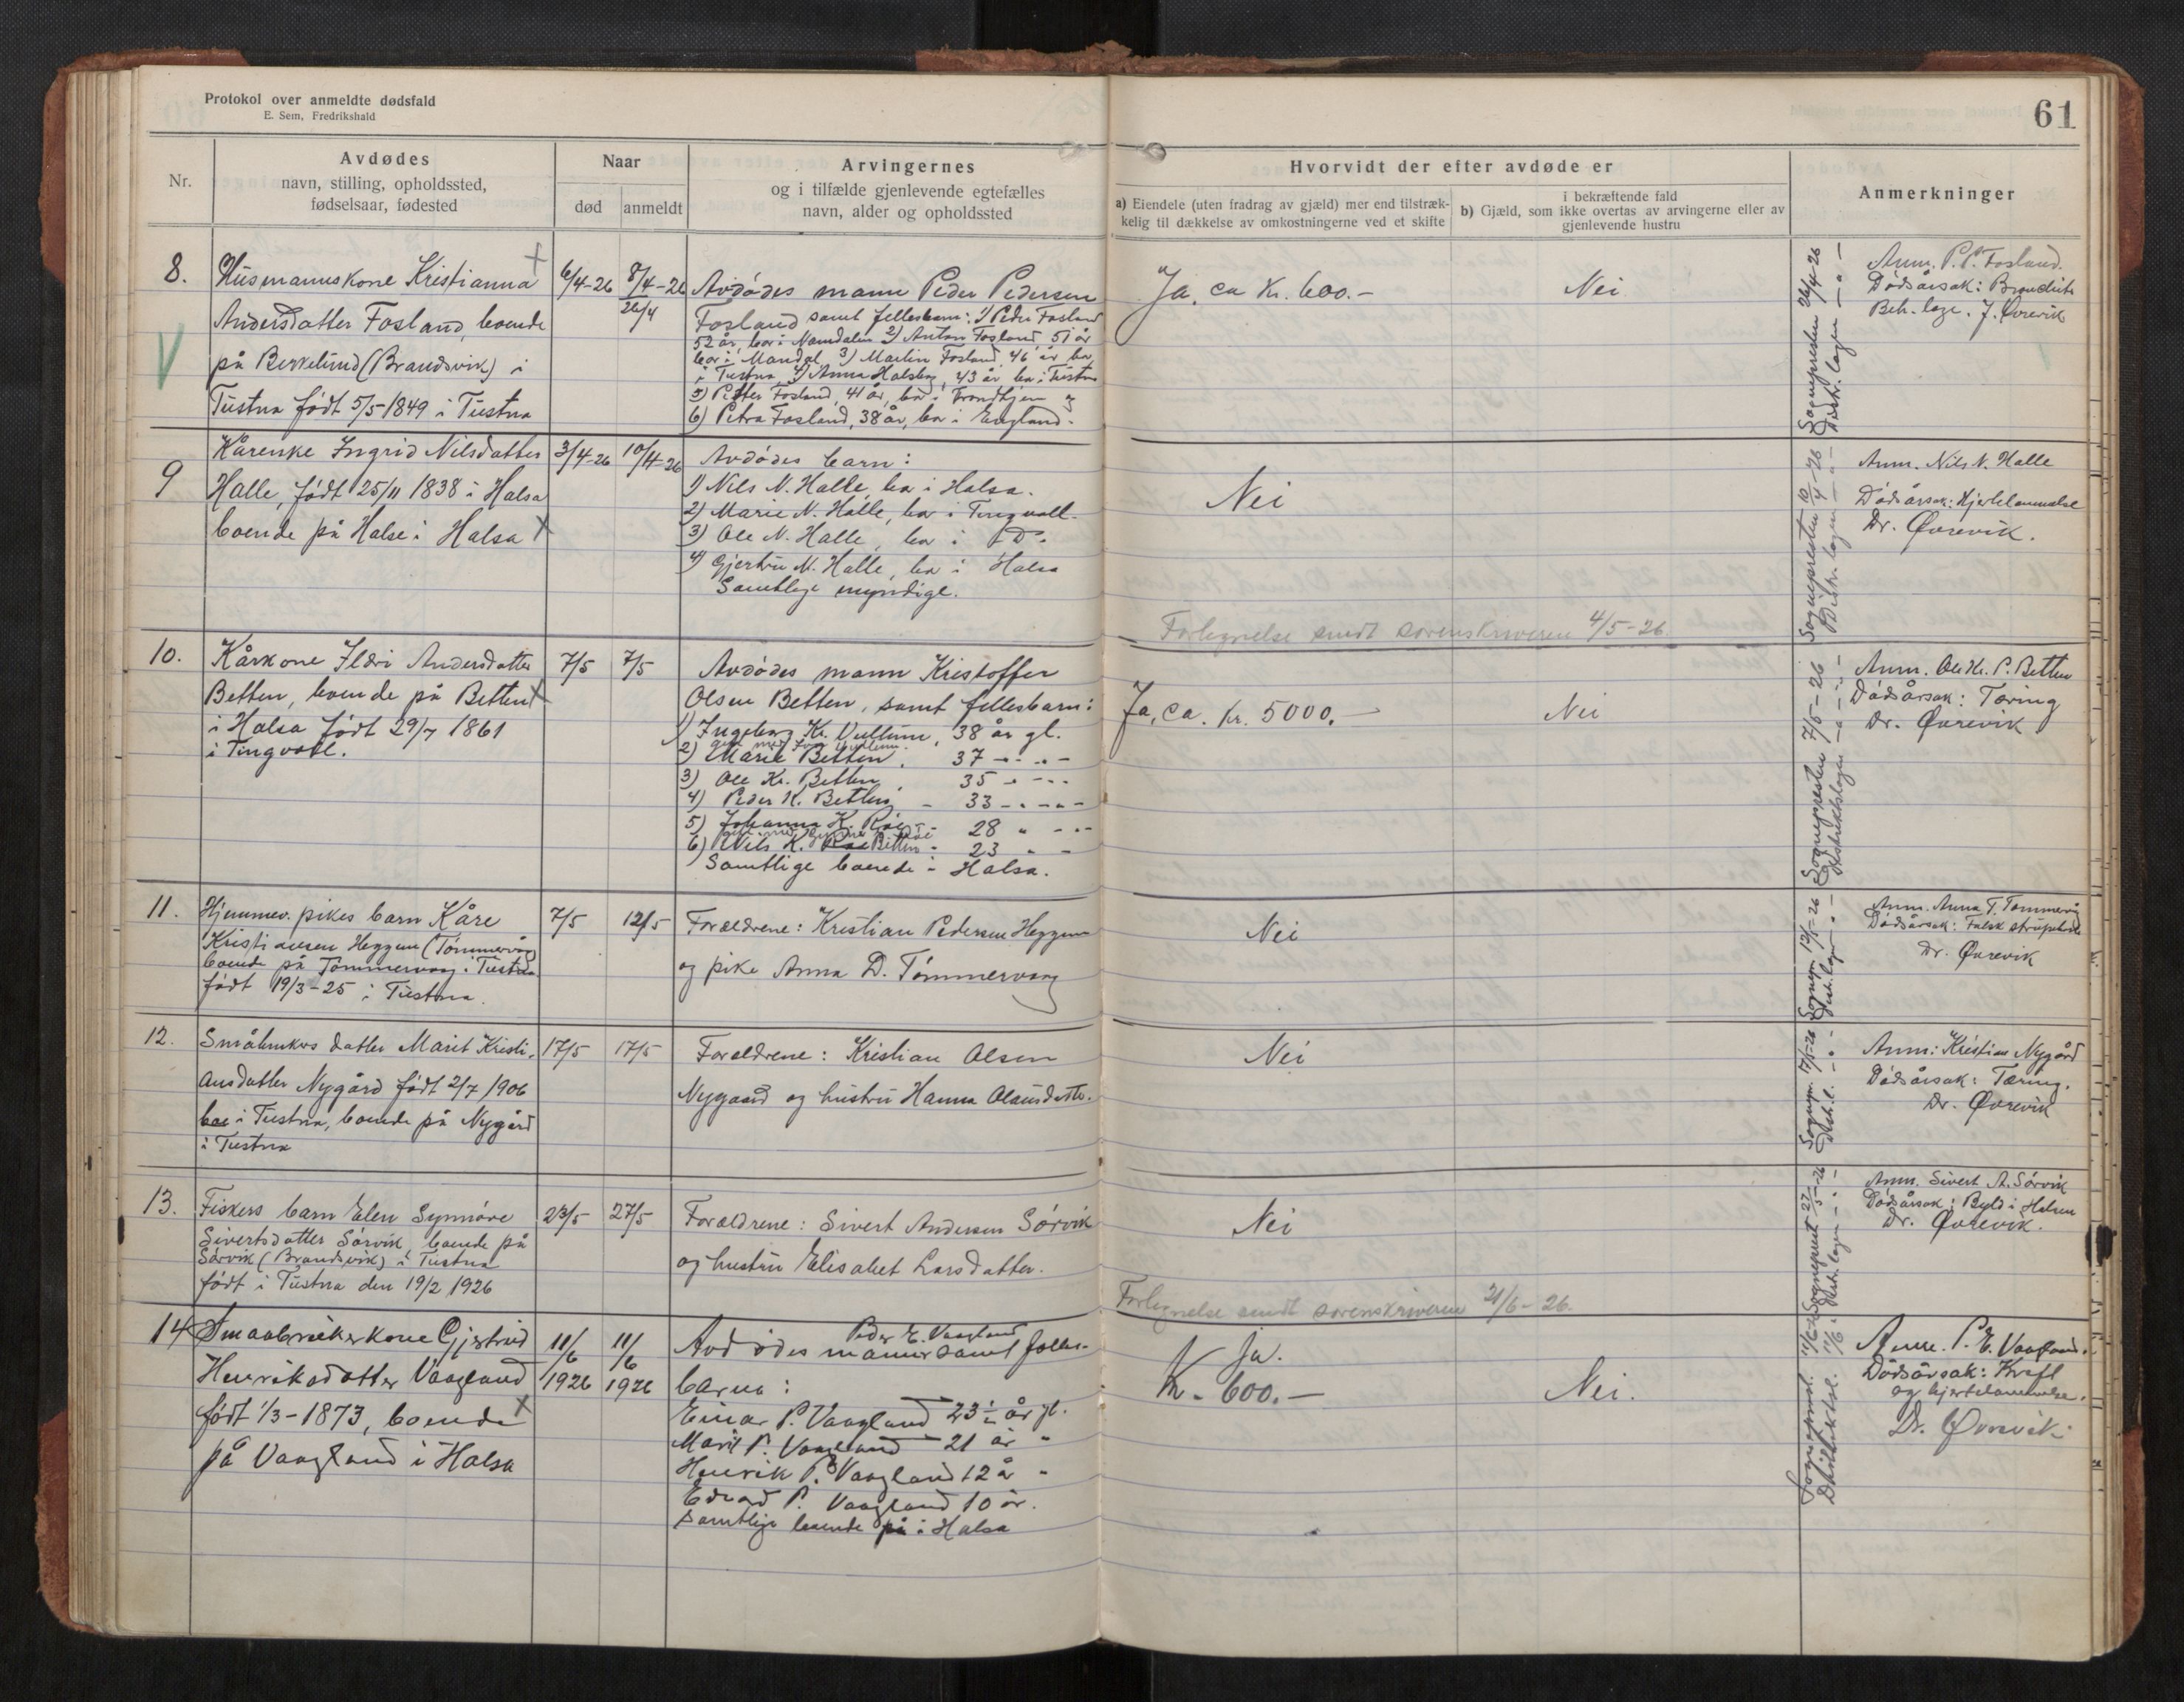 Protokol over anmeldte dødsfald
E. Sem, Fredrikshald
61
Nr.
Avdødes
navn, stilling, opholdssted,
fødselsaar, fødested
Naar
død
anmeldt
Arvingernes
og i tilfælde gjenlevende egtefælles
navn, alder og opholdssted
Hvorvidt der efter avdøde er
a) Eiendele (uten fradrag av gjæld) mer end tilstræk-
kelig til dækkelse av omkostningerne ved et skifte
i bekræftende fald
b) Gjæld, som ikke overtas av arvingerne eller av
gjenlevende hustru
Anmerkninger
8.
Husmannskone Kristianna
Andersdatter Fosland, boende
på Berkelund (Brandsvik) i
Tustna født 5/5-1849 i Tustna
6/4-26
8/4-26
26/4
Avdødes mann Peder Pedersen
Fosland samt fellesbarn: 1) Peder Fosland
52 år, bor i Namdalen 2) Anton Fosland 51 år
bor i Mandal, 3) Martin Fosland, 46 år bor
i Tustna 4) Anna Halsbog, 43 år bor i Tustna
5) Petter Fosland, 41 år, bor i Trondhjem og
6) Petra Fosland, 38 år, bor i England.
Ja, ca kr. 600.-
Nei
Sognepresten 26/4-26
Distr. lægen - " -
Anm. P. P. Fosland.
Dødsårsak: Bronchit
Beh. læge. J. Øvrevik
9
Kårenke Ingrid Nilsdatter
Halle, født 25/11 1838 i Halsa
boende på Halse i Halsa
3/4-26
10/4-26
Avdødes barn:
1) Nils N. Halle, bor i Halsa.
2) Marie N. Halle, bor i Tingvoll.
3) Ole N. Halle, bor i D°
4) Gjertru N. Halle, bor i Halsa
Samtlige myndige.
Nei
Sognepresten 10/4-26
Distr. lægen - " -
Anm. Nils N. Halle
Dødsårsak: Hjertelammelse
Dr. Øvrevik.
Fortegnelse sendt sorenskriveren 4/5-26.
10.
Kårkone Ildri Andersdatter
Betten, boende på Betten
i Halsa født 29/7 1861
i Tingvoll.
7/5
7/5
Avdødes mann Kristoffer
Olsen Betten, samt fellesbarn:
1) Ingeborg Kr. Vullum, 38 år gl.
2) Marie Betten, 37 - " -
3) Ole Kr. Betten, 35 - " -
4) Peder K. Betten - 33 - " -
5) Johanna K. Røe - 28 " - " -
6) Nils K. Røe Betten - 23 " -
Samtlige boende i Halsa.
Ja, ca. kr. 5000.-
Nei
Sognepresten 7/5-26
Distriktslægen - " -
Anm. Ole Kr. P. Betten
Dødsårsak: Tæring
Dr. Øvrevik
11.
Hjemmev. pikes barn Kåre
Kristiansen Heggem (Tømmervåg)
boende på Tømmervåg i Tustna
født 19/3-25 i Tustna.
7/5
12/5
Foreldrene: Kristian Pedersen Heggem
og pike Anna D. Tømmervaag
Nei
Sognepr. 12/5-26
Distr. lægen - " -
Anm. Anna T. Tømmervåg
Dødsårsak: Falsk strupehoste
Dr. Øvrevik
12.
Småbrukers datter Marit Kristi-
ansdatter Nygård født 2/7 1906
i Tustna, boende på Nygård
i Tustna
17/5
17/5
Foreldrene: Kristian Olsen
Nygaard og hustru Hanna Olausdattr.
Nei
Sognepr. 17/5-26
Distr.l. - " -
Anm: Kristian Nygård
Dødsårsak: Tæring.
Dr. Øvrevik
13.
Fiskers barn Elen Synnøve
Sivertsdatter Sørvik, boende på
Sørvik (Brandsvik) i Tustna
født i Tustna den 19/2 1926
23/5
27/5
Foreldrene: Sivert Andersen Sørvik
og hustru Elisabet Larsdatter.
Nei
Sogneprest 27/5-26
Distr. lægen - " -
Anm. Sivert A. Sørvik
Dødsårsak: Byld i Halsen
Dr. Øvrevik.
Fortegnelse sendt sorenskriveren 21/6-26.
14
Smaabrukerkone Gjertrud
Henriksdatter Vaagland
født 1/3-1873, boende
på Vaagland i Halsa
11/6
1926
11/6
1926
Peder E. Vaagland
Avdødes mann samt felles-
barn:
Einar P. Vaagland 23 ½ år gl.
Marit P. Vaagland 21 år "
Henrik P. Vaagland 12 år "
Edvard P. Vaagland 10 år.
Samtlige boende på i Halsa
Ja.
Kr. 600.-
Nei.
Sogneprest. 11/6-26
Distriktsl. 11/6
Anm. P. E. Vaagland.
Dødsårsak: Kreft
og hjertelammelse.
Dr. Øvrevik